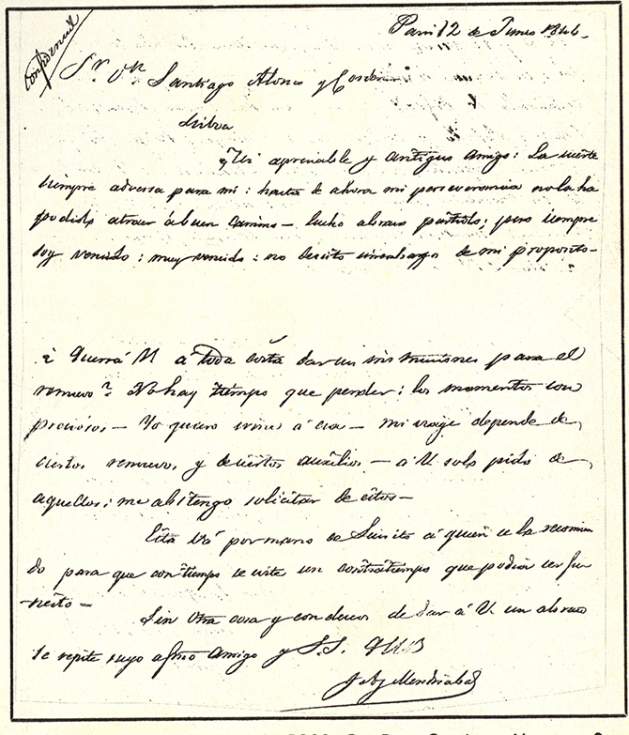 Confidencial
Paris 12 de Junio 1846.
Sr. Dn. Santiago Alonso y Cordero
Lisboa
Mi apreciable y antiguo amigo: La suerte
siempre adversa para mi: hasta de ahora mi perseverancia no la ha
podido atraer á buen camino — lucho á brazo partido; pero siempre
soy vencido: muy vencido: no desisto sin embargo de mi proposito —
¿Querrá V. á toda costa dar sus instrucciones para el
renuevo? No hay tiempo que perder: los momentos son
preciosos. — Yo quiero irme á esa — mi viaje depende de
ciertos renuevos, y de ciertos auxilios — á V. solo pido de
aquellos; me abstengo solicitar de estos —
Esta vá por mano de
do para que con tiempo se evite un contratiempo que podria ser fu
nesto —
Sin otra cosa y con deseos de dar á V. un abrazo
se repite suyo afmo amigo y S.S.
J. A. y Mendizabal